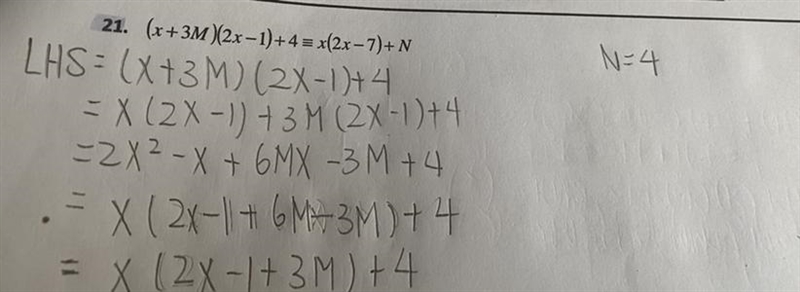 21. (x+3M)(2x−1)+4≡x(2x−7)+N
N=4
LHS=(X+3M)(2X-1)+4
=X(2X-1)+3M(2X-1)+4
=2X²-X+6MX-3M+4
=X(2X-1+6M-3M)+4
=X(2X-1+3M)+4